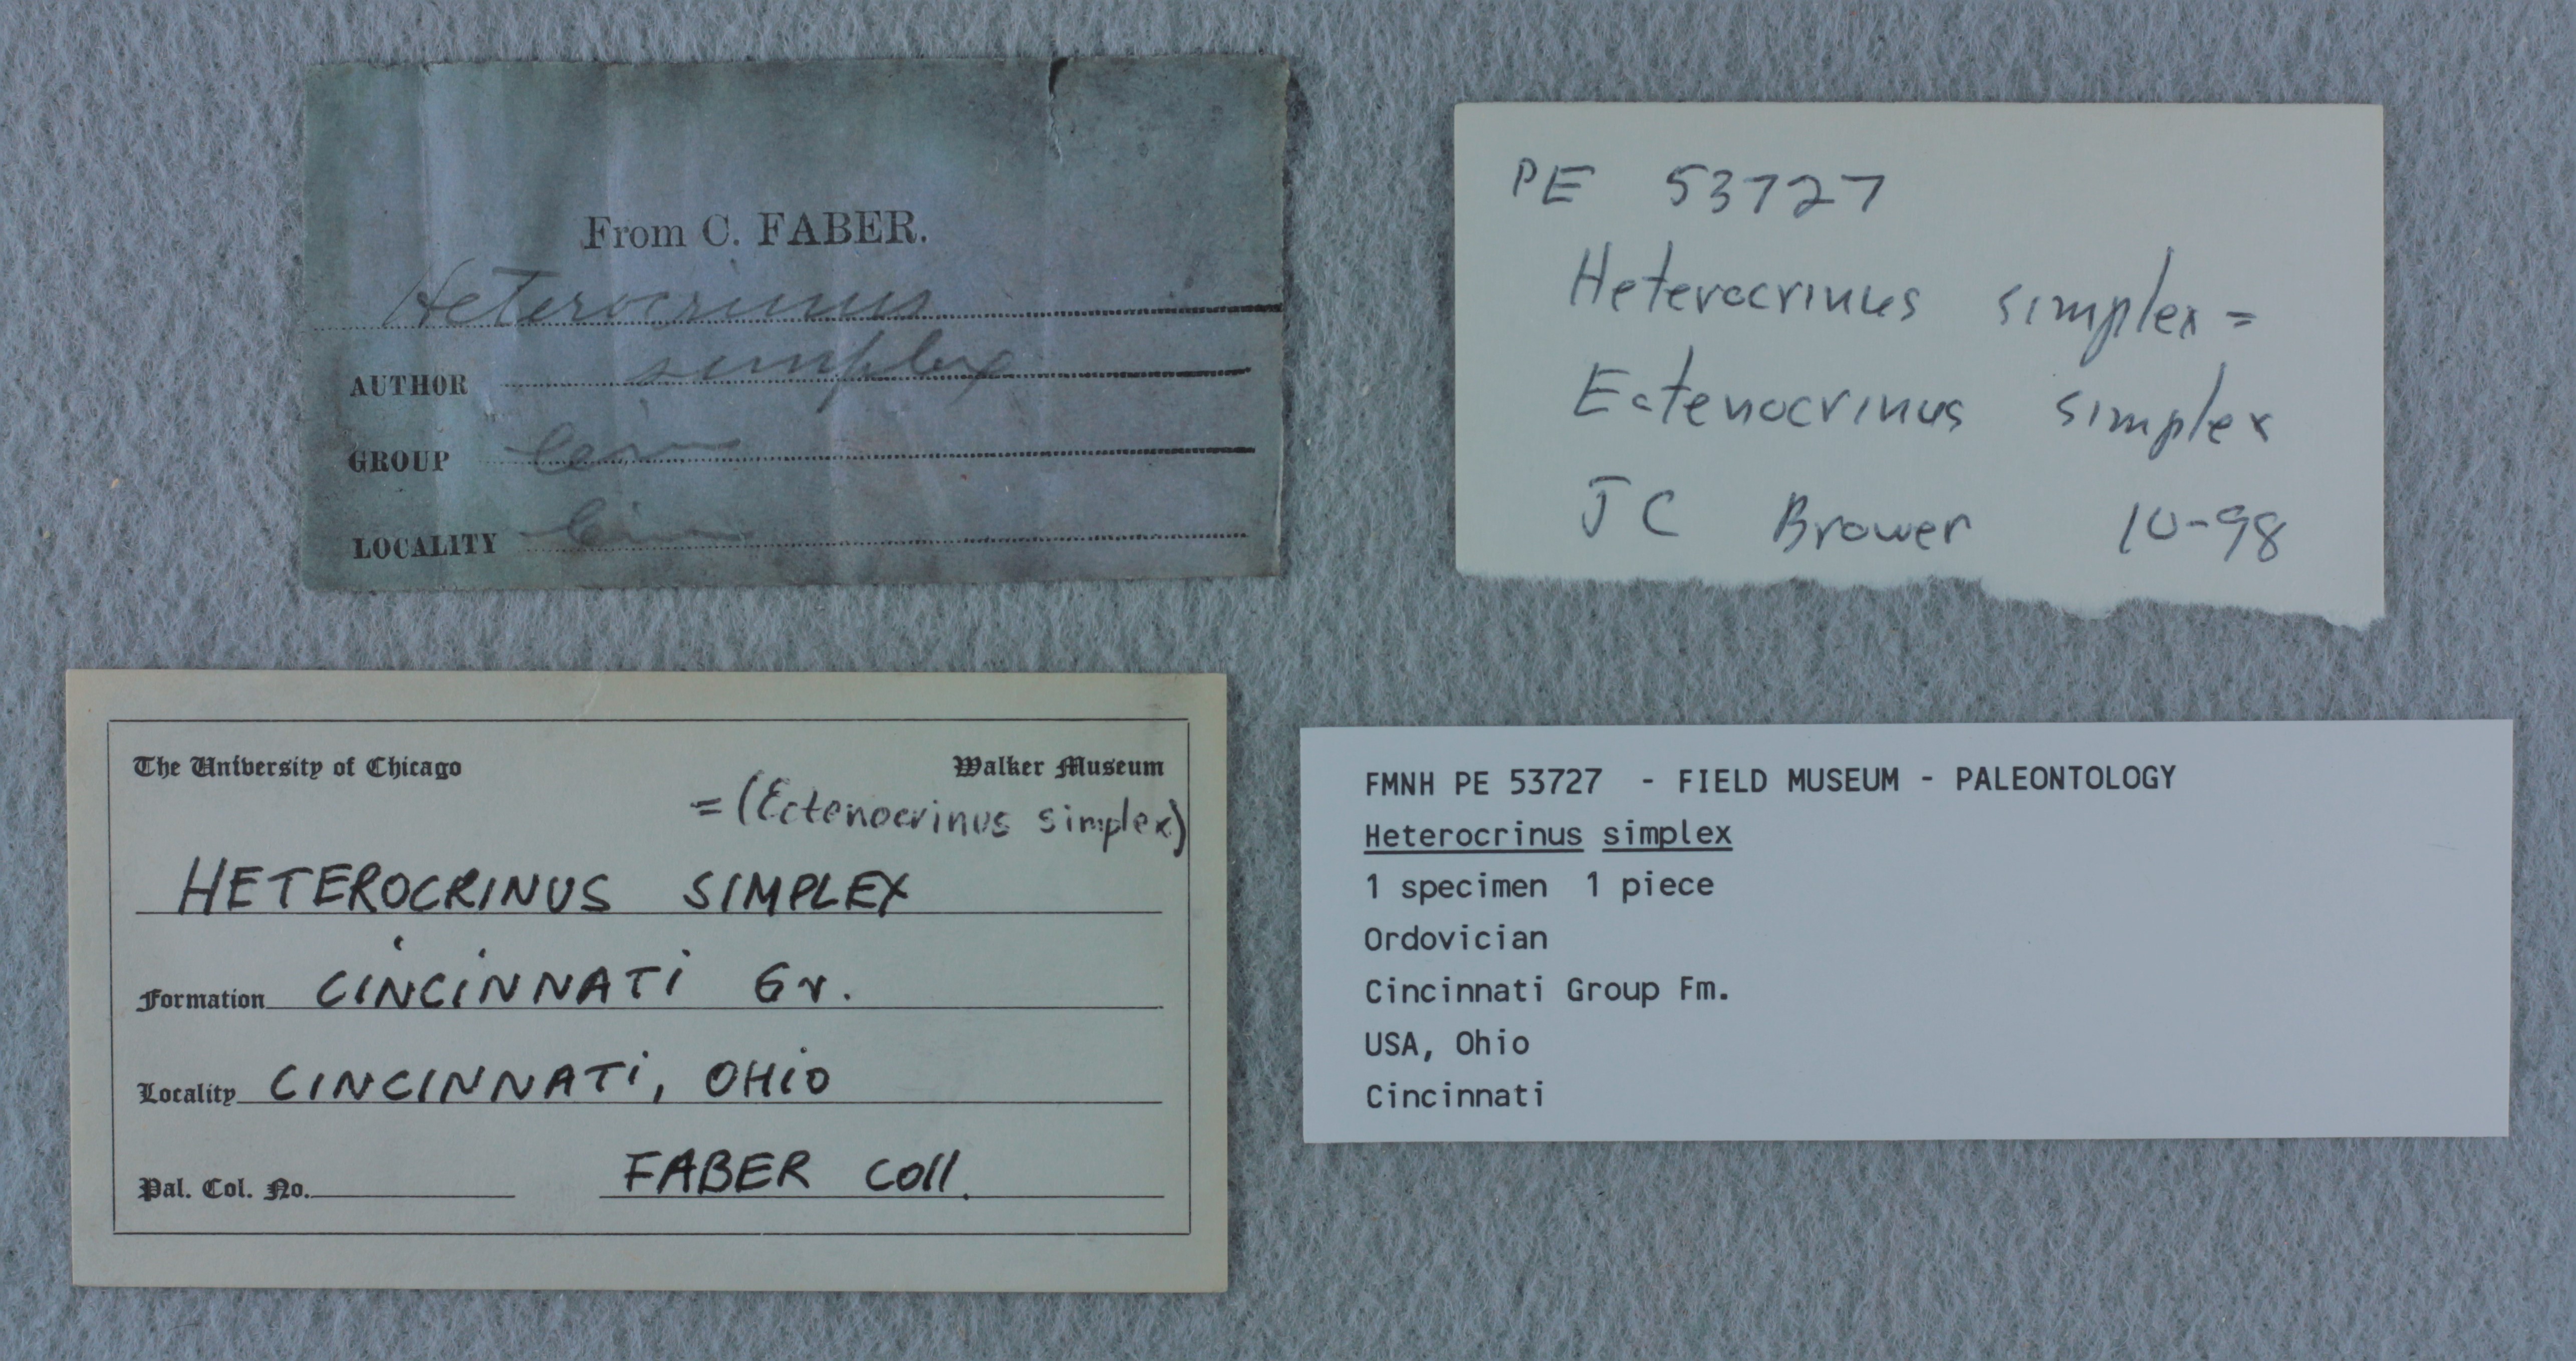 From C. FABER.
Heterocrinus
AUTHOR simplex
GROUP Cin
LOCALITY Cin
PE 53727
Heterocrinus simplex =
Ectenocrinus simplex
JC Brower 10-98
The University of Chicago Walker Museum
= (Ectenocrinus simplex)
HETEROCRINUS SIMPLEX
Formation CINCINNATI Gr.
Locality CINCINNATI, OHIO
Pal. Col. No. FABER Coll.
FMNH PE 53727 - FIELD MUSEUM - PALEONTOLOGY
Heterocrinus simplex
1 specimen 1 piece
Ordovician
Cincinnati Group Fm.
USA, Ohio
Cincinnati